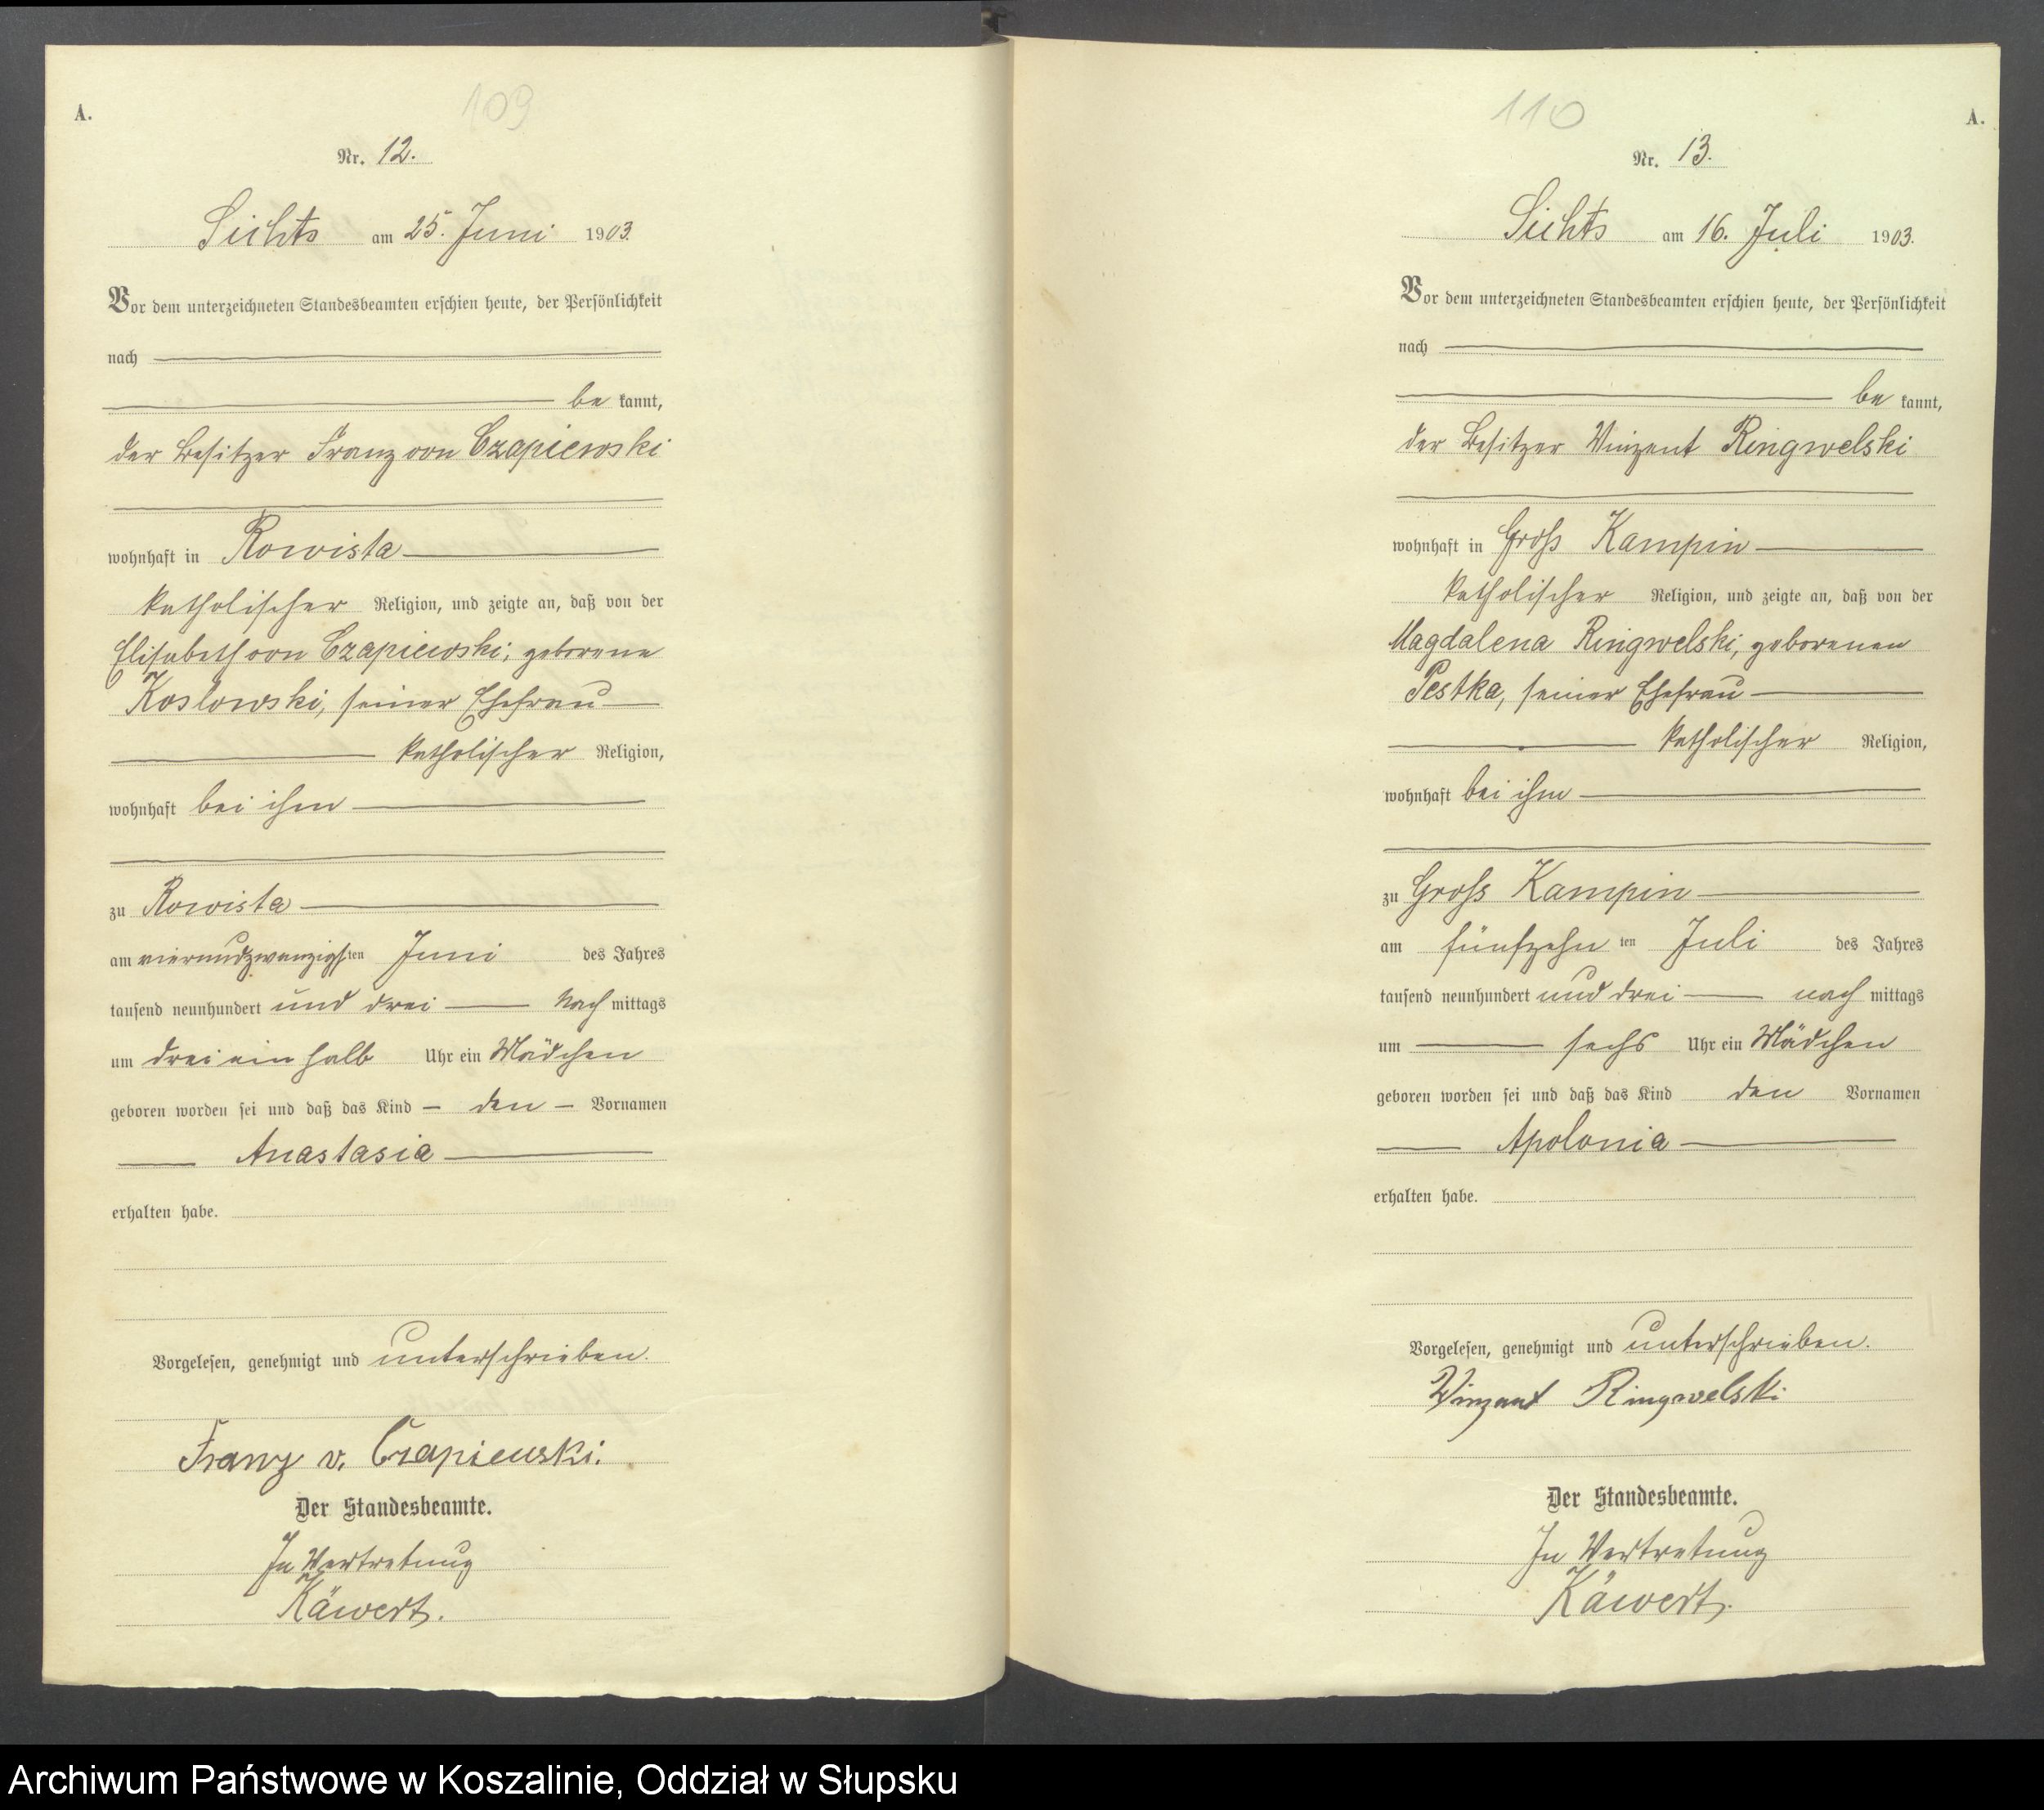 109
A.
Nr. 12.
Sichts am 25. Juni 1903.
Vor dem unterzeichneten Standesbeamten erschien heute, der Persönlichkeit
nach
be kannt,
der Besitzer Franz von Czapiewski
wohnhaft in Rowista
katholischer Religion, und zeigte an, daß von der
Elisabeth von Czapiewski, geborene
Koslowski, seiner Ehefrau
katholischer Religion,
wohnhaft bei ihm
zu Rowista
am vierundzwanzigsten Juni des Jahres
tausend neunhundert und drei Nach mittags
um drei ein halb Uhr ein Mädchen
geboren worden sei und daß das Kind – den – Vornamen
Anastasia
erhalten habe.
Vorgelesen, genehmigt und unterschrieben.
Franz v. Czapiewski.
Der Standesbeamte.
In Vertretung
Käwert.
110
A.
Nr. 13.
Sichts am 16. Juli 1903.
Vor dem unterzeichneten Standesbeamten erschien heute, der Persönlichkeit
nach
be kannt,
der Besitzer Vinzent Ringwelski
wohnhaft in Groß Kampin
katholischer Religion, und zeigte an, daß von der
Magdalena Ringwelski, geborenen
Pestka, seiner Ehefrau
katholischer Religion,
wohnhaft bei ihm
zu Groß Kampin
am fünfzehn ten Juli des Jahres
tausend neunhundert und drei nach mittags
um sechs Uhr ein Mädchen
geboren worden sei und daß das Kind den Vornamen
Apolonia
erhalten habe.
Vorgelesen, genehmigt und unterschrieben.
Vinzent Ringwelski
Der Standesbeamte.
In Vertretung
Käwert.
Archiwum Państwowe w Koszalinie, Oddział w Słupsku